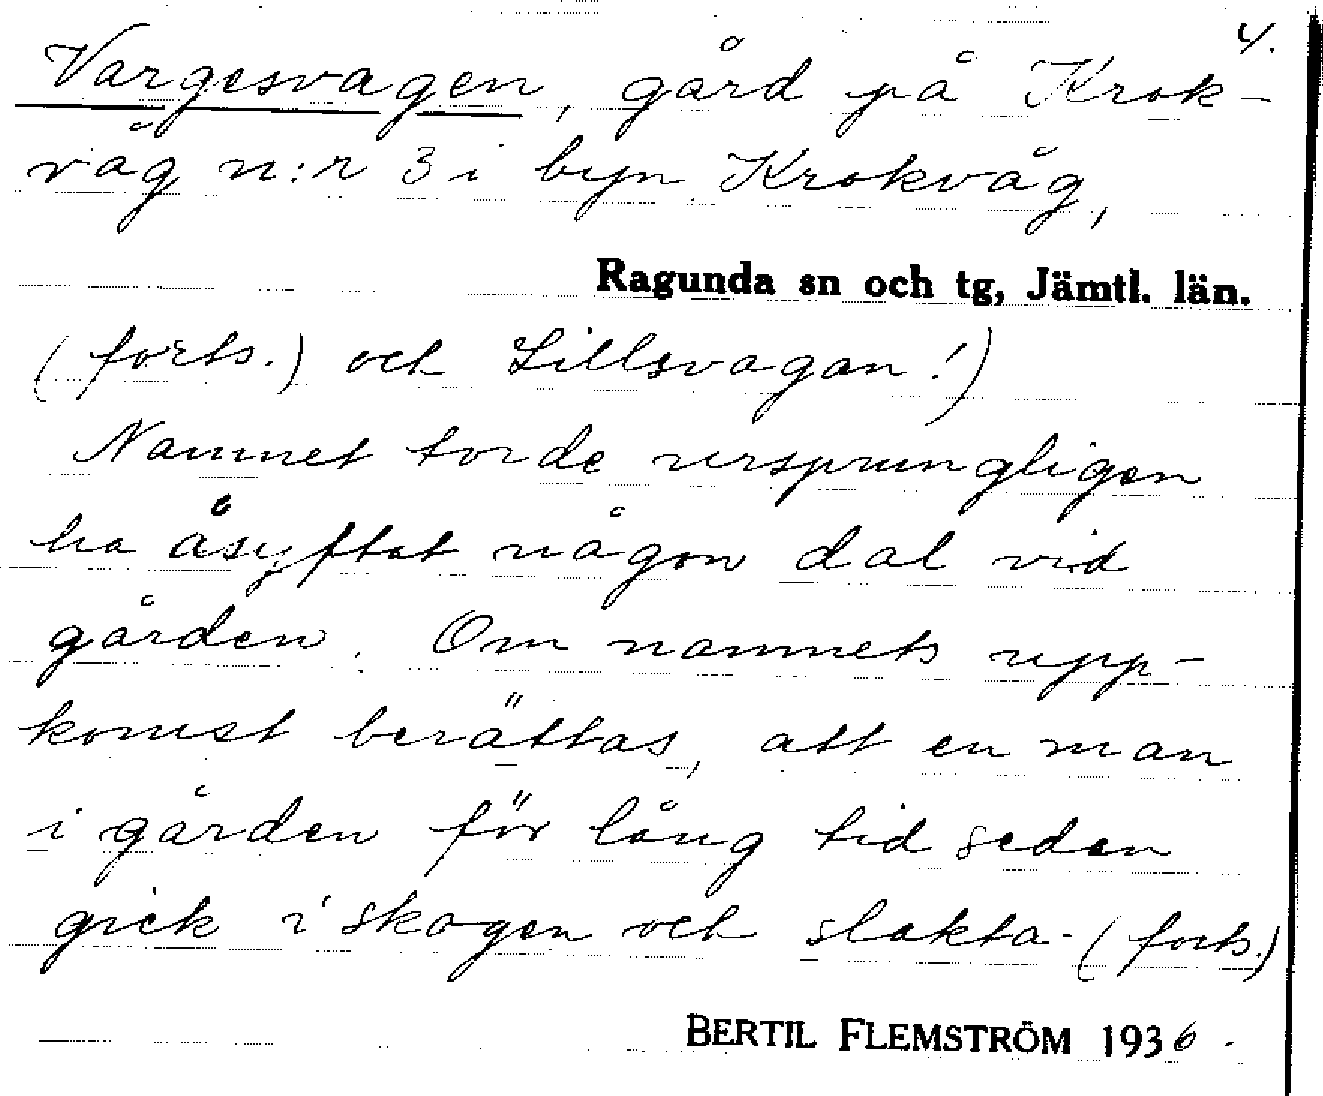 4.
Vargesvagen, gård på Krok-
våg n:r 3 i byn Krokvåg,
Ragunda sn och tg, Jämtl. län.
(forts.) och Lillsvagan!)
Namnet torde ursprungligen
ha åsyftat någon dal vid
gården. Om namnets upp-
komst berättas, att en man
i gården för lång tid sedan
gick i skogen och slakta- (forts.)
BERTIL FLEMSTRÖM 1936.